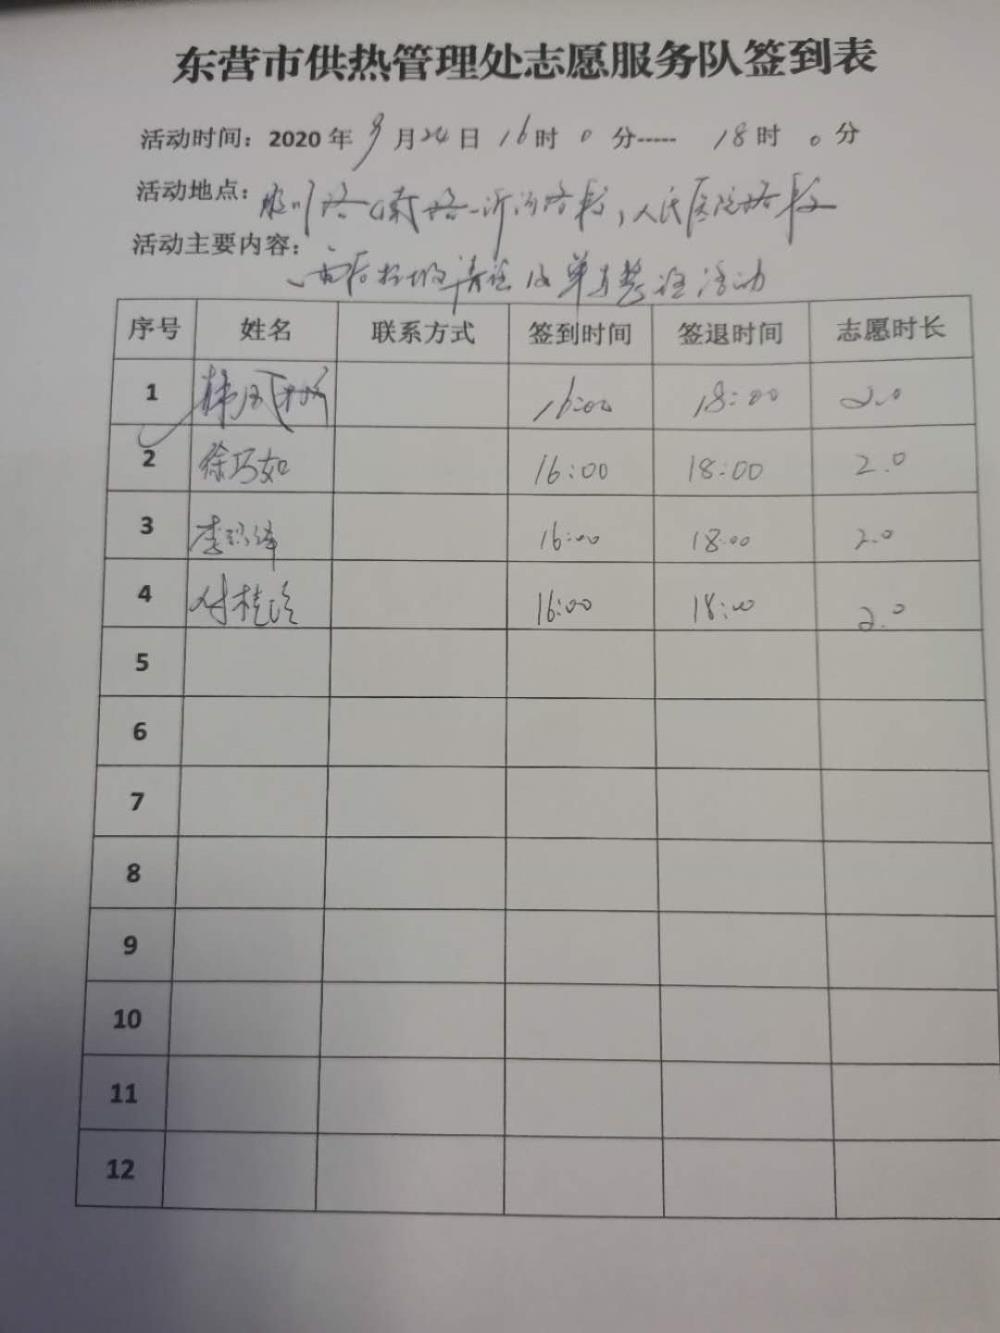 东营市供热管理处志愿服务队签到表
活动时间：2020年9月24日16时0分-----18时0分
活动地点：路段，人民医院路段
活动主要内容：清洁及单车整治活动
序号 姓名 联系方式 签到时间 签退时间 志愿时长
1 16:00 18:00 2.0
2 徐巧如 16:00 18:00 2.0
3 李 16:00 18:00 2.0
4 付桂玲 16:00 18:00 2.0
5
6
7
8
9
10
11
12